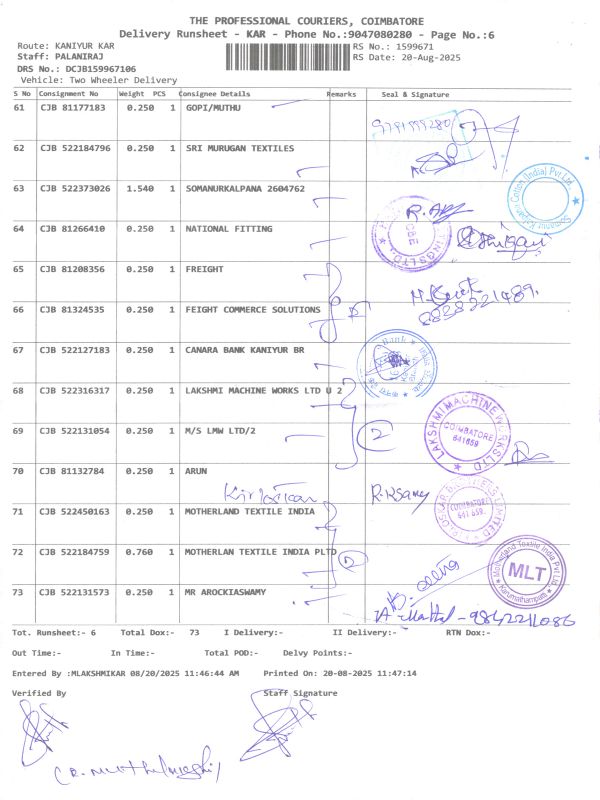 THE PROFESSIONAL COURIERS, COIMBATORE
Delivery Runsheet - KAR - Phone No.:9047080280 - Page No.:6
Route: KANIYUR KAR RS No.: 1599671
Staff: PALANIRAJ RS Date: 20-Aug-2025
DRS No.: DCJB159967106
Vehicle: Two Wheeler Delivery
S No Consignment No Weight PCS Consignee Details Remarks Seal & Signature
61 CJB 81177183 0.250 1 GOPI/MUTHU
9791999280
62 CJB 522184796 0.250 1 SRI MURUGAN TEXTILES
63 CJB 522373026 1.540 1 SOMANURKALPANA 2604762
64 CJB 81266410 0.250 1 NATIONAL FITTING
CBE
65 CJB 81208356 0.250 1 FREIGHT
66 CJB 81324535 0.250 1 FEIGHT COMMERCE SOLUTIONS
67 CJB 522127183 0.250 1 CANARA BANK KANIYUR BR
68 CJB 522316317 0.250 1 LAKSHMI MACHINE WORKS LTD U 2
LAKSHMI MACHINE WORKS LTD
COIMBATORE
641659
69 CJB 522131054 0.250 1 M/S LMW LTD/2
2
70 CJB 81132784 0.250 1 ARUN
COIMBATORE
641 659
71 CJB 522450163 0.250 1 MOTHERLAND TEXTILE INDIA
72 CJB 522184759 0.760 1 MOTHERLAN TEXTILE INDIA PLTD
Motherland Textile India Pvt Ltd.
MLT
Karumathampatti
73 CJB 522131573 0.250 1 MR AROCKIASWAMY
9842211086
Tot. Runsheet:- 6 Total Dox:- 73 I Delivery:- II Delivery:- RTN Dox:-
Out Time:- In Time:- Total POD:- Delvy Points:-
Entered By :MLAKSHMIKAR 08/20/2025 11:46:44 AM Printed On: 20-08-2025 11:47:14
Verified By Staff Signature